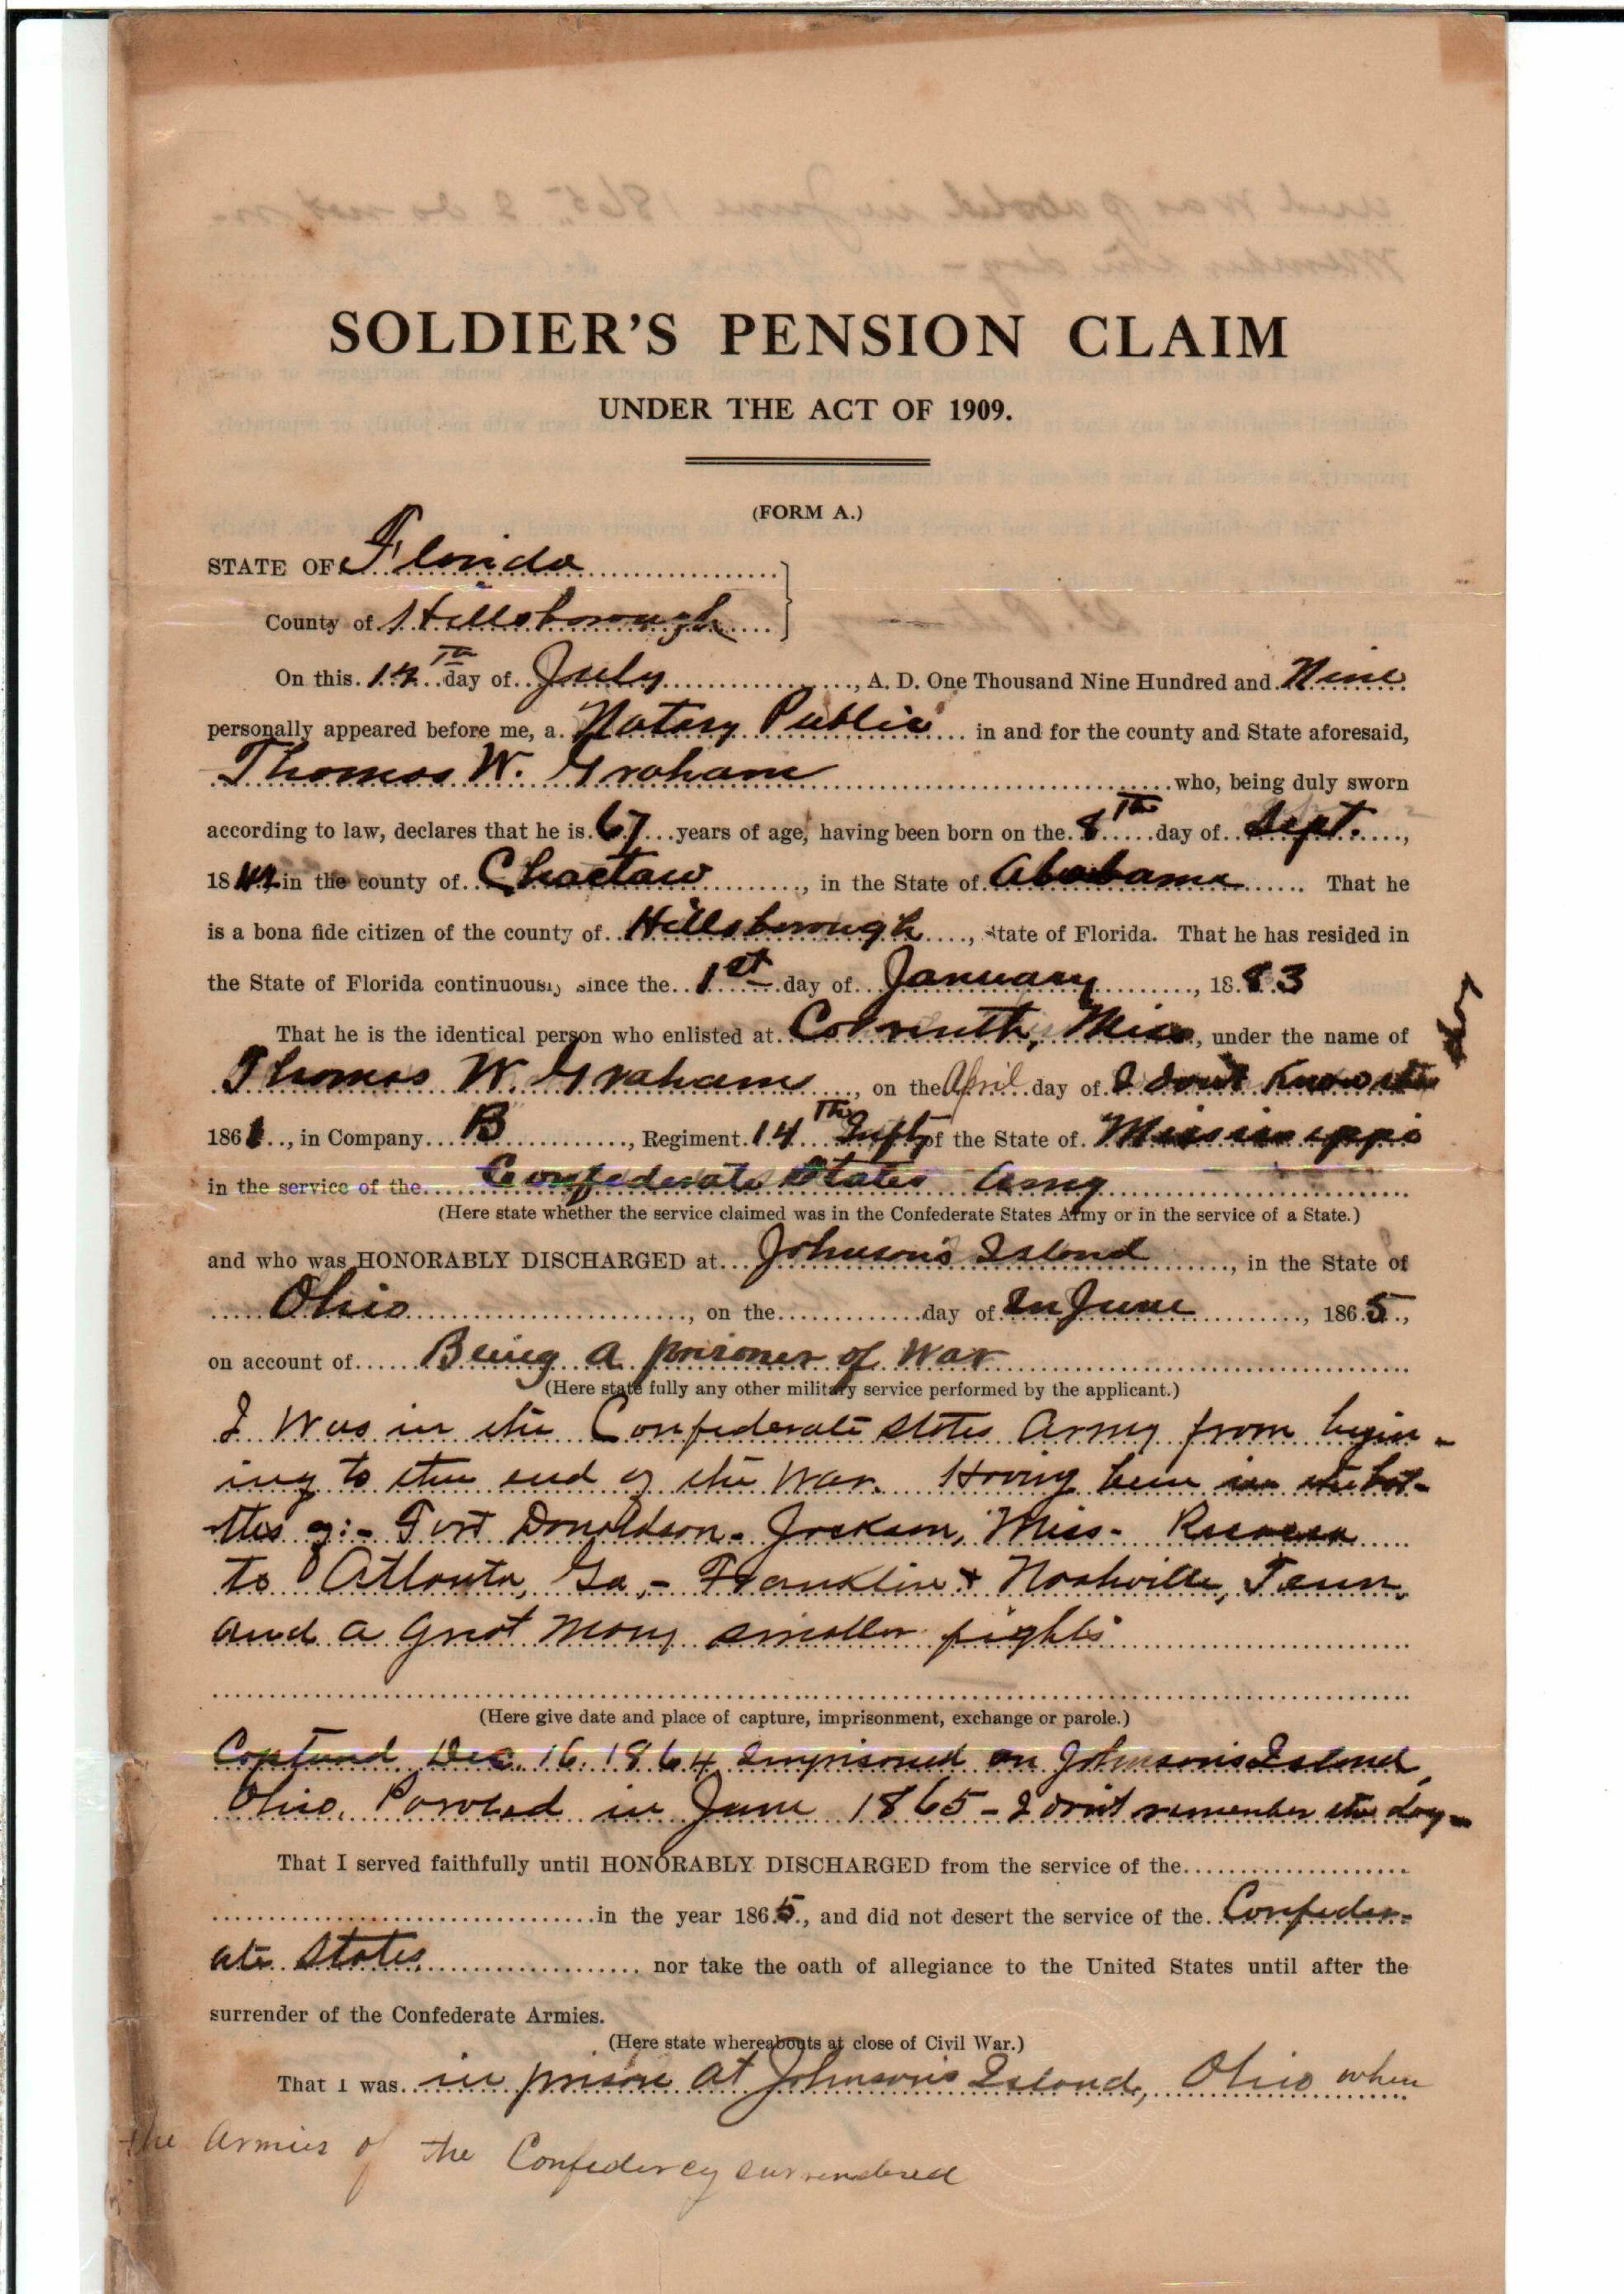 SOLDIER'S PENSION CLAIM
UNDER THE ACT OF 1909.
(FORM A.)
STATE OF Florida
County of Hillsborough
On this 14th day of July, A. D. One Thousand Nine Hundred and Nine
personally appeared before me, a Notary Public in and for the county and State aforesaid,
Thomas W. Graham who, being duly sworn
according to law, declares that he is 67 years of age, having been born on the 8th day of Sept.,
1842 in the county of Choctaw, in the State of Alabama. That he
is a bona fide citizen of the county of Hillsborough, State of Florida. That he has resided in
the State of Florida continuously since the 1st day of January, 1883
That he is the identical person who enlisted at Corinth, Miss, under the name of
Thomas W. Graham, on the April day of I don't know the
day
1861, in Company B, Regiment 14th Inft of the State of Mississippi
in the service of the Confederate States Army
(Here state whether the service claimed was in the Confederate States Army or in the service of a State.)
and who was HONORABLY DISCHARGED at Johnson's Island, in the State of
Ohio, on the day of In June, 1865,
on account of Being a prisoner of War
(Here state fully any other military service performed by the applicant.)
I was in the Confederate States Army from begin-
ing to the end of the War. Having been in the bat-
tles of:- Fort Donaldson- Jackson, Miss- Resaca
to Atlanta, Ga,- Franklin & Nashville, Tenn.
and a great many smaller fights
(Here give date and place of capture, imprisonment, exchange or parole.)
Captured Dec. 16. 1864 Imprisoned on Johnson's Island,
Ohio. Paroled in June 1865- I don't remember the day-
That I served faithfully until HONORABLY DISCHARGED from the service of the
in the year 1865, and did not desert the service of the Confeder-
ate States nor take the oath of allegiance to the United States until after the
surrender of the Confederate Armies.
(Here state whereabouts at close of Civil War.)
That I was in prison at Johnson's Island, Ohio when
the Armies of the Confedercy surrendered